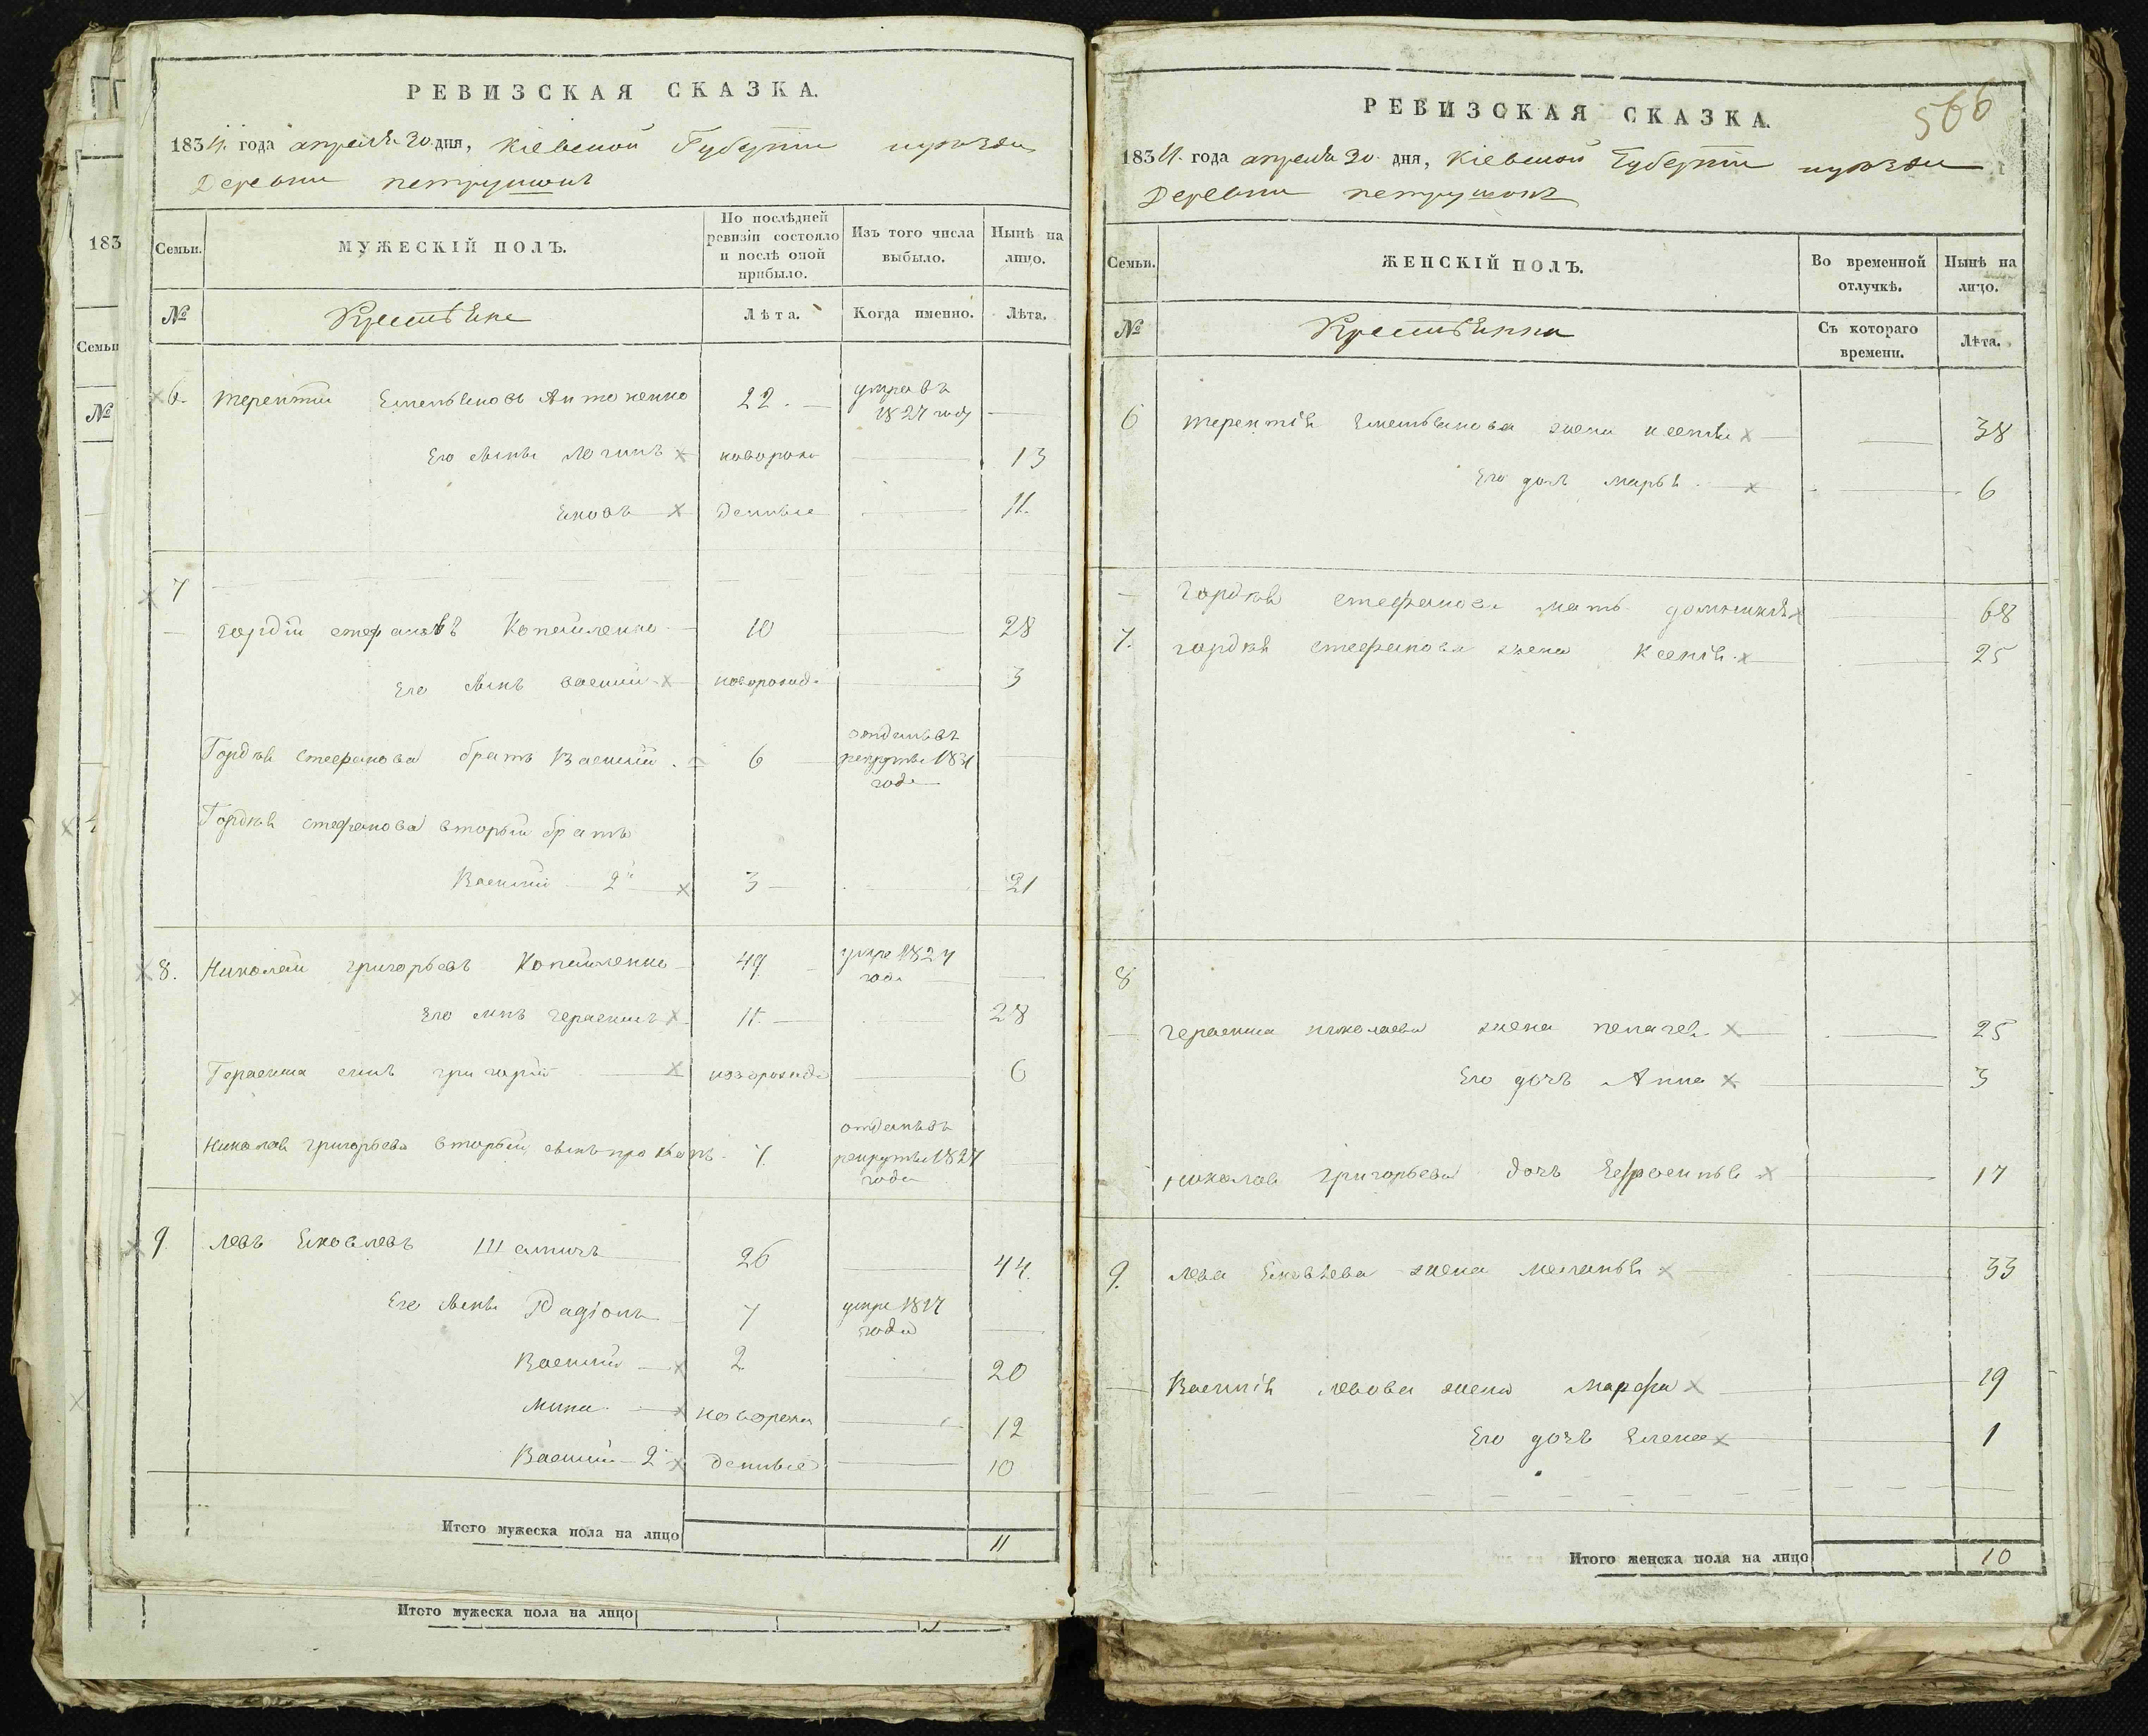 РЕВИЗСКАЯ СКАЗКА.
1834. года апреля 30. дня, Кіевской Губерніи
Деревни петрушокъ
Семьи.
МУЖЕСКІЙ ПОЛЪ.
По послѣдней ревизіи состояло и послѣ оной прибыло.
Изъ того числа выбыло.
Нынѣ на лицо.
№
Крестьяне
Лѣта.
Когда именно.
Лѣта.
6. терентій Емельяновъ Антоненко 22. умре въ 1827 году
Его сынъ Логинъ новорож 13
Яковъ денные 11.
7
гордій стефановъ Копейленко 10 28
Его сынъ василій новорожд 3
Гордѣя стефанова братъ Василій 6 отданъ въ рекруты 1831 года
Гордѣя стефанова вторый братъ
Василій 2й 3 21
8. Николай григорьевъ Копейленко 49 умре 1827 года
Его сынъ герасимъ 11. 28
Герасима сынъ григорій новорожд 6
Николая григорьева вторый сынъ прокопъ 7. отданъ въ рекруты 1827 года
9 левъ Яковлевъ 26 44.
Его сынъ Радіонъ 7 умре 1817 года
Василій 2 20
Мина новорож 12
Василій 2 денные 10
Итого мужеска пола на лицо 11
Итого мужеска пола на лицо
183
Семьи
№
566
РЕВИЗСКАЯ СКАЗКА.
1834. года апреля 30. дня, Кіевской Губерніи
Деревни петрушокъ
Семьи.
ЖЕНСКІЙ ПОЛЪ.
Во временной отлучкѣ.
Нынѣ на лицо.
№
Крестьянки
Съ котораго времени.
Лѣта.
6 терентія Емельянова жена ксенія 38
Его дочь марья 6
гордѣя стефанова мать 68
7. гордѣя стефанова жена Ксенія 25
8
герасима николаева жена пелагея 25
Его дочь Анна 3
николая григорьева дочь Ефросинья 17
9. лева Яковлева жена меланья 33
Василія левова жена марфа 19
Его дочь Елена 1
Итого женска пола на лицо 10